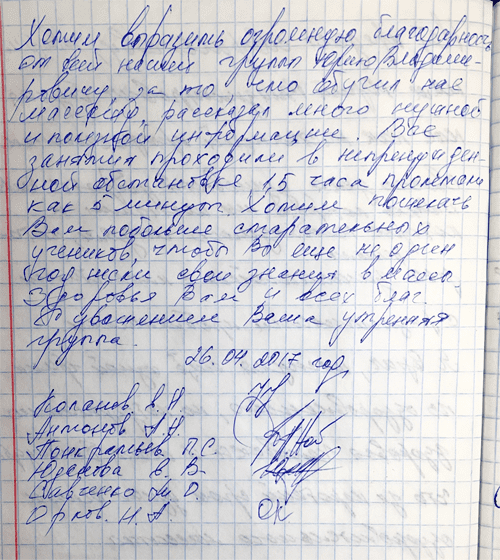 Хотим выразить огромную благодарность
от всей нашей группы Юрию Владими-
ровичу, за то что обучил нас
массажу, рассказал много нужной
и полезной информации. Все
занятия проходили в непринужден-
ной обстановке, 1,5 часа пролетали
как 5 минут. Хотим пожелать
Вам побольше старательных
учеников, чтобы Вы еще не один
год несли свои знания в массы.
Здоровья Вам и всех благ.
С уважением Ваша утренняя
группа.
26.04.2017 год
Копанев А. Н.
Антонов А. Н.
Панкратьев П. С.
В. В.
Савченко М. О.
Орлов. Н. А.